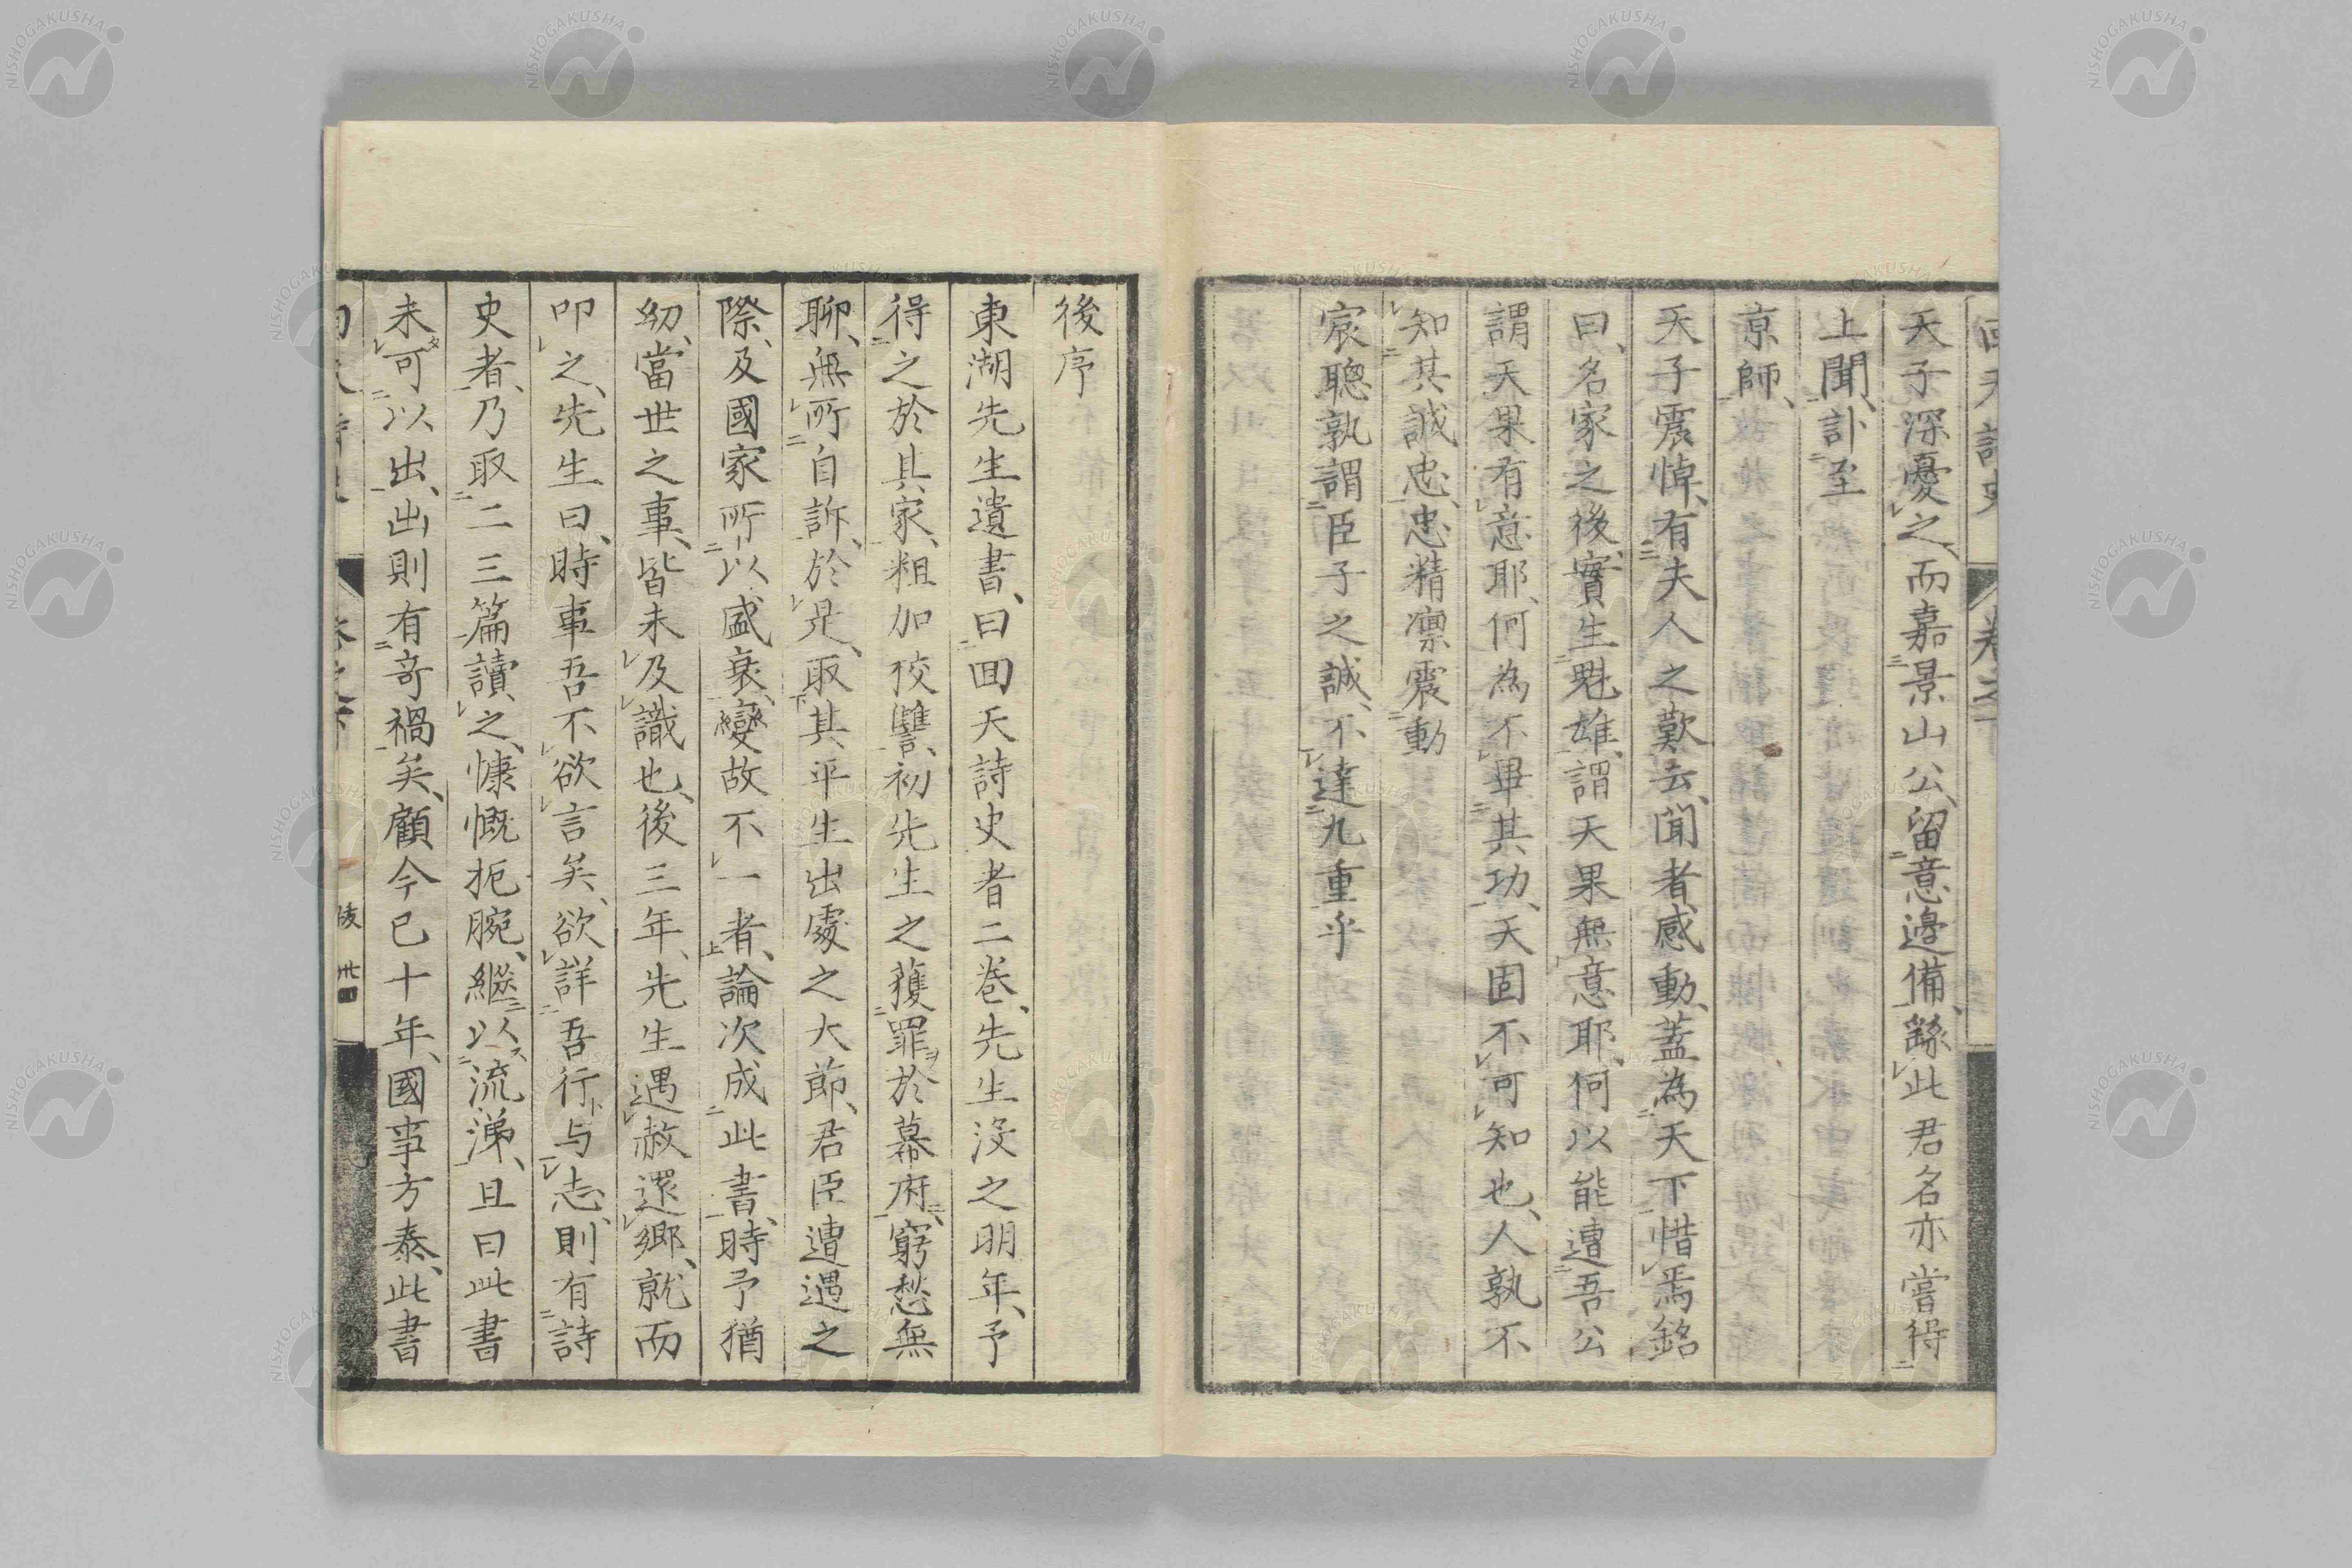 天子深憂之、而嘉景山公、留意邊備、繇此君名亦嘗得
上聞、訃至
京師、
天子震悼、有夫人之歎云、聞者感動、蓋為天下惜焉、銘
曰、名家之後、實生魁雄、謂天果無意耶、何以能遭吾公
謂天果有意耶、何為不畢其功、天固不可知也、人孰不
知其誠忠、忠精凛震動
宸聰、孰謂臣子之誠、不達九重乎
後序
東湖先生遺書、曰回天詩史者二巻、先生没之明年、予
得之於其家、粗加校讐、初先生之獲罪於幕府、窮愁無
聊、無所自訴、於是、取其平生出處之大節、君臣遭遇之
際、及國家所以盛衰、變故不一者、論次成此書、時予猶
幼、當世之事、皆未及識也、後三年、先生遇赦還郷、就而
叩之、先生曰、時事吾不欲言矣、欲詳吾行与志、則有詩
史者、乃取二三篇讀之、慷慨扼腕、繼以流涕、且曰此書
未可以出、出則有奇禍矣、顧今已十年、國事方泰、此書